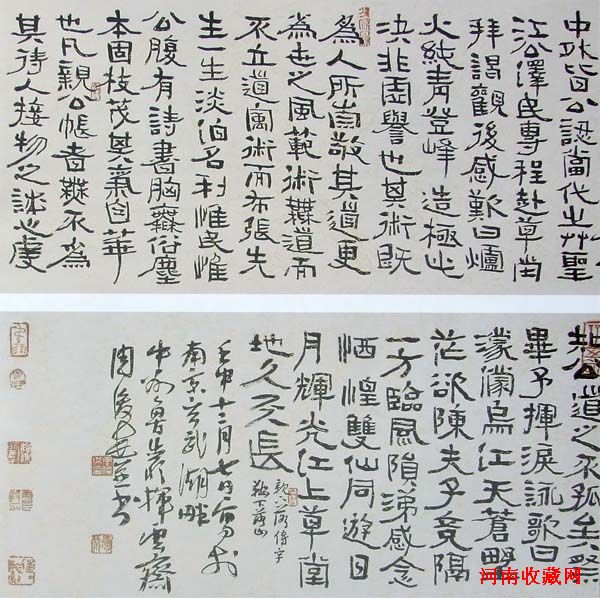 中外皆公認當代之艸聖
江公澤民專程赴草堂
拜謁觀後感歎曰爐
火純青登峰造極此
決非虛譽也其術既
為人所崇敬其道更
為世之風範術無道而
不立道寓術而亦張先
生一生淡泊名利惟民惟
公腹有詩書胸無俗塵
本固枝茂其氣自華
也凡親公帳者無不為
其待人接物之誠心虔
公道之不孤矣祭
畢予揮淚詠歌曰
濛濛烏江天蒼野
茫欲陳夫子意隔
一方臨風隕涕感念
恓惶雙仙同遊日
月輝光江上草堂
地久天長
壬申十二月七日寫於
南京玄武湖畔
魯生於揮雲齋
周俊
河南收藏网